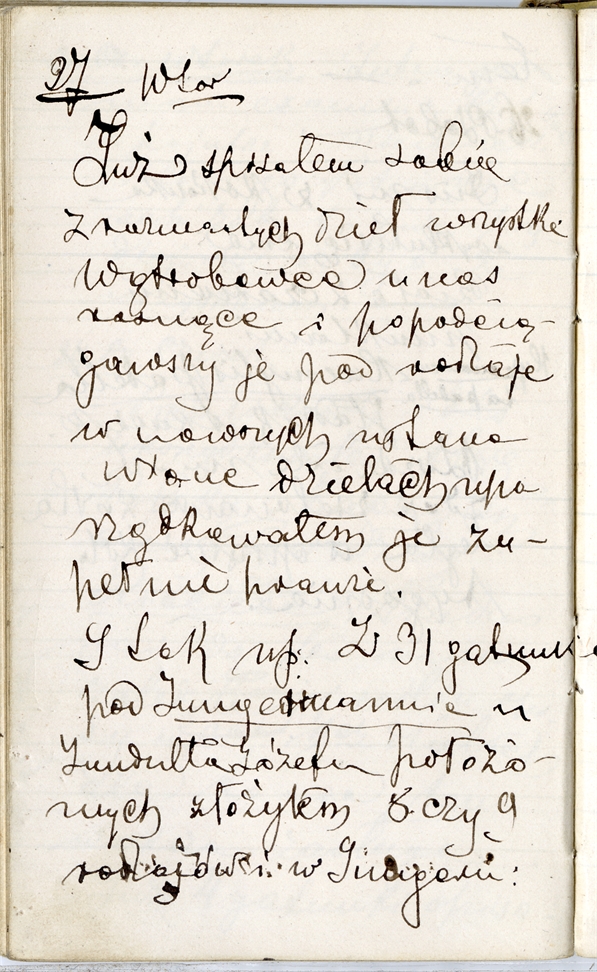 27 Wtor
Już spisałem sobie
z rozmaitych dzieł wszystkie
wątrobowce u nas
rosnące i popodcią-
gawszy je pod rodzaje
w nowszych ustano
wione dziełach upo
rządkowałem je zu-
pełnie prawie.
I tak np. Z 31 gatunk
pod Jungermannie u
Jundziłła Józefa położo-
nych złożyłem 8 czy 9
rodzajów i w Jungerm: